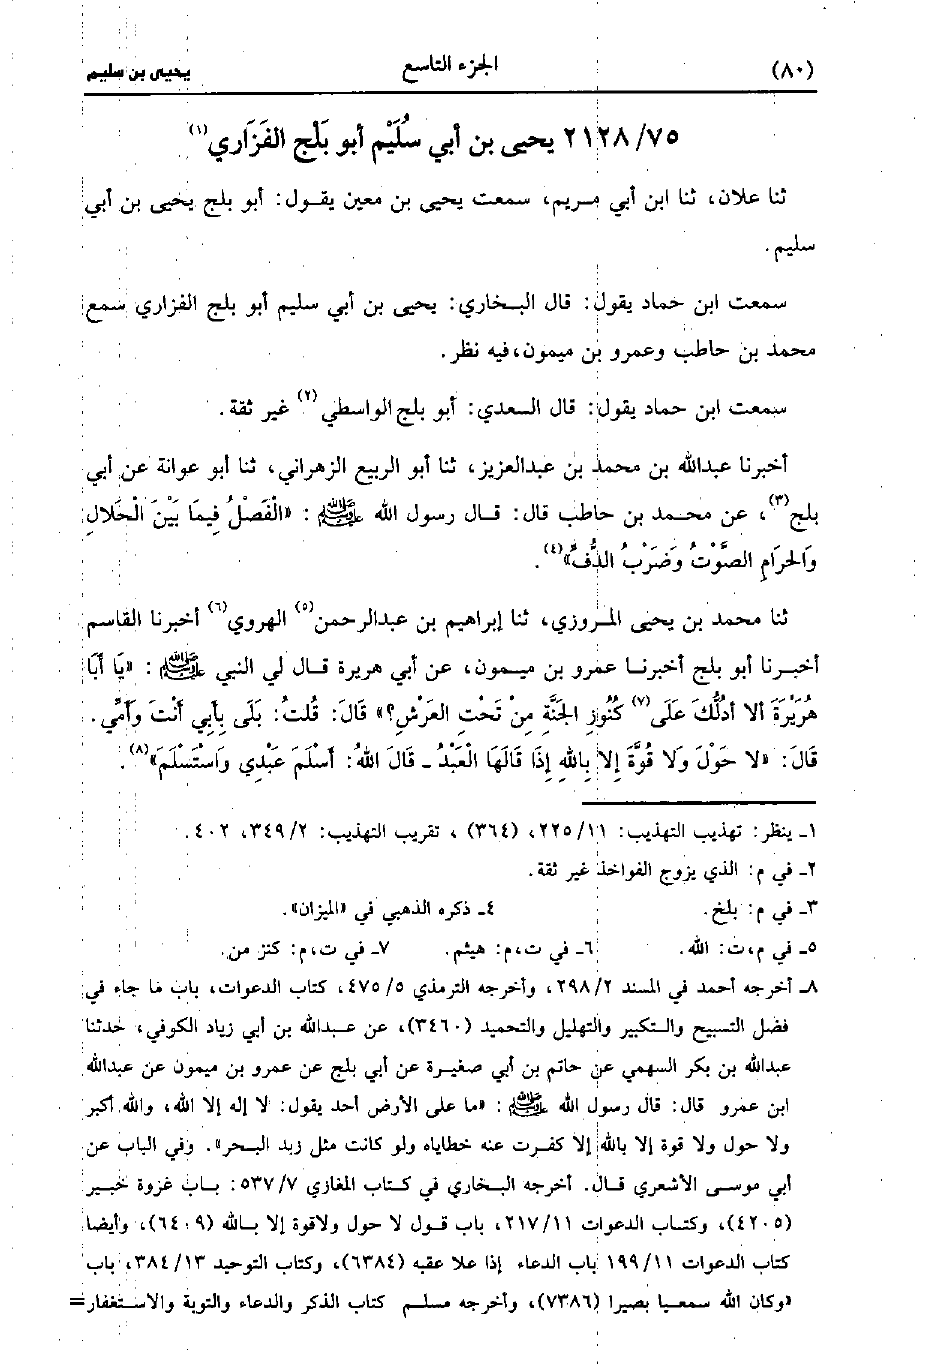 (٨٠) الجزء التاسع يحيى بن سليم
٢١٢٨/٧٥ يحيى بن أبي سُلَيْم أبو بَلْج الفَزَاري(١)
ثنا علان، ثنا ابن أبي مريم، سمعت يحيى بن معين يقول: أبو بلج يحيى بن أبي
سليم.
سمعت ابن حماد يقول: قال البخاري: يحيى بن أبي سليم أبو بلج الفزاري سمع
محمد بن حاطب وعمرو بن ميمون، فيه نظر.
سمعت ابن حماد يقول: قال السعدي: أبو بلج الواسطي(٢) غير ثقة.
أخبرنا عبدالله بن محمد بن عبدالعزيز، ثنا أبو الربيع الزهراني، ثنا أبو عوانة عن أبي
بلج(٣)، عن محمد بن حاطب قال: قال رسول الله ﷺ: «الْفَصْلُ فِيمَا بَيْنَ الْحَلالِ
وَالْحَرَامِ الصَّوْتُ وَضَرْبُ الدُّفِّ»(٤).
ثنا محمد بن يحيى المروزي، ثنا إبراهيم بن عبدالرحمن(٥) الهروي(٦) أخبرنا القاسم
أخبرنا أبو بلج أخبرنا عمرو بن ميمون، عن أبي هريرة قال لي النبي ﷺ: «يَا أَبَا
هُرَيْرَةَ أَلا أَدُلُّكَ عَلَى(٧) كُنُوزِ الجَنَّةِ مِنْ تَحْتِ العَرْشِ؟» قَالَ: قُلتُ: بَلَى بِأَبِي أَنْتَ وَأُمِّي.
قَالَ: «لا حَوْلَ وَلا قُوَّةَ إِلا بِاللهِ إِذَا قَالَهَا الْعَبْدُ ـ قَالَ اللهُ: أَسْلَمَ عَبْدِي وَاسْتَسْلَمَ»(٨).
١ـ ينظر: تهذيب التهذيب: ٢٢٥/١١، (٣٦٤)، تقريب التهذيب: ٣٤٩/٢، ٤٠٢.
٢ـ في م: الذي يزوج الفواخذ غير ثقة.
٣ـ في م: بلخ. ٤ـ ذكره الذهبي في «الميزان».
٥ـ في م، ت: الله. ٦ـ في ت، م: هيثم. ٧ـ في ت، م: كنز من.
٨ـ أخرجه أحمد في المسند ٢٩٨/٢، وأخرجه الترمذي ٤٧٥/٥، كتاب الدعوات، باب ما جاء في
فضل التسبيح والتكبير والتهليل والتحميد (٣٤٦٠)، عن عبدالله بن أبي زياد الكوفي، حدثنا
عبدالله بن بكر السهمي عن حاتم بن أبي صغيرة عن أبي بلج عن عمرو بن ميمون عن عبدالله
ابن عمرو قال: قال رسول الله ﷺ: «ما على الأرض أحد يقول: لا إله إلا الله، والله أكبر
ولا حول ولا قوة إلا بالله إلا كفرت عنه خطاياه ولو كانت مثل زبد البحر». وفي الباب عن
أبي موسى الأشعري قال. أخرجه البخاري في كتاب المغازي ٥٣٧/٧: باب غزوة خيبر
(٤٢٠٥)، وكتاب الدعوات ٢١٧/١١، باب قول لا حول ولاقوة إلا بالله (٦٤٠٩)، وأيضا
كتاب الدعوات ١٩٩/١١ باب الدعاء إذا علا عقبه (٦٣٨٤)، وكتاب التوحيد ٣٨٤/١٣، باب
«وكان الله سمعيا بصيرا (٧٣٨٦)، وأخرجه مسلم كتاب الذكر والدعاء والتوبة والاستغفار=